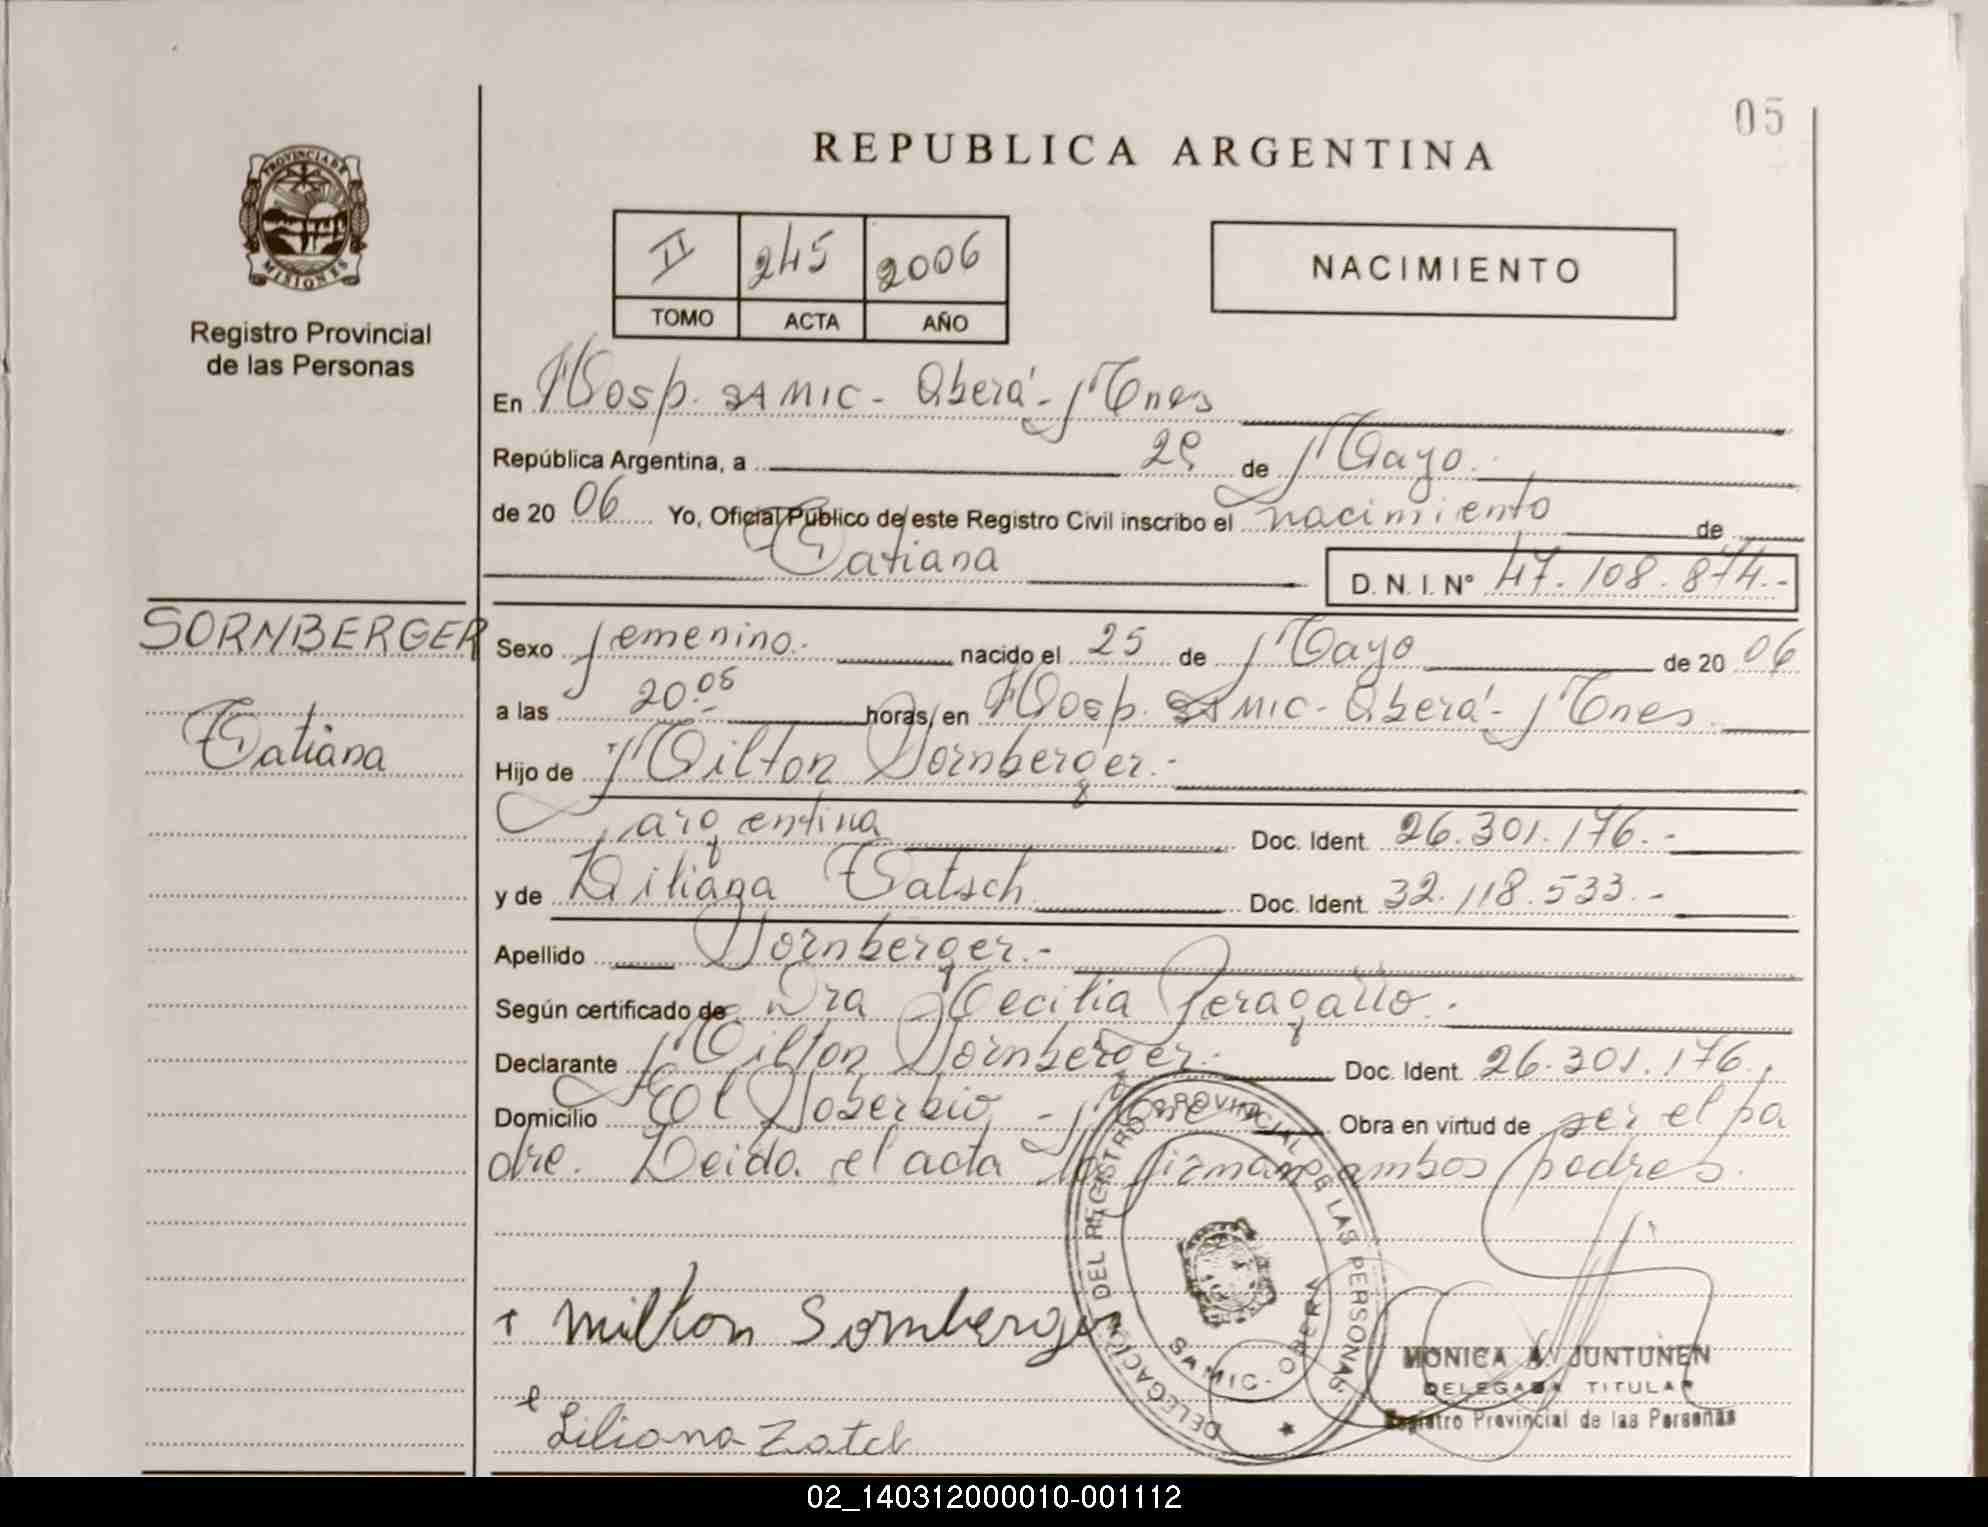 05
REPUBLICA ARGENTINA
PROVINCIA DE MISIONES
Registro Provincial
de las Personas
II 245 2006
TOMO ACTA AÑO
NACIMIENTO
En Hosp. SAMIC - Oberá - Mnes
República Argentina, a 29 de Mayo.
de 20 06 Yo, Oficial Público de este Registro Civil inscribo el nacimiento de
Tatiana D. N. I. N° 47.108.874.-
SORNBERGER
Tatiana
Sexo femenino. nacido el 25 de Mayo de 20 06
a las 20:05 horas, en Hosp. SAMIC - Oberá - Mnes
Hijo de Milton Sornberger.-
argentina Doc. Ident. 26.301.176.-
y de Liliana Tatsch Doc. Ident. 32.118.533.-
Apellido Sornberger.-
Según certificado de Dra Cecilia Peragallo.
Declarante Milton Sornberger.- Doc. Ident. 26.301.176.
Domicilio El Soberbio - Mnes Obra en virtud de ser el pa
dre. Leída el acta la firman ambos padres.
Milton Sornberger
Liliana
DELEGACIÓN DEL REGISTRO PROVINCIAL DE LAS PERSONAS
SAMIC - OBERA
MONICA A. JUNTUNEN
DELEGADA TITULAR
Registro Provincial de las Personas
02_140312000010-001112